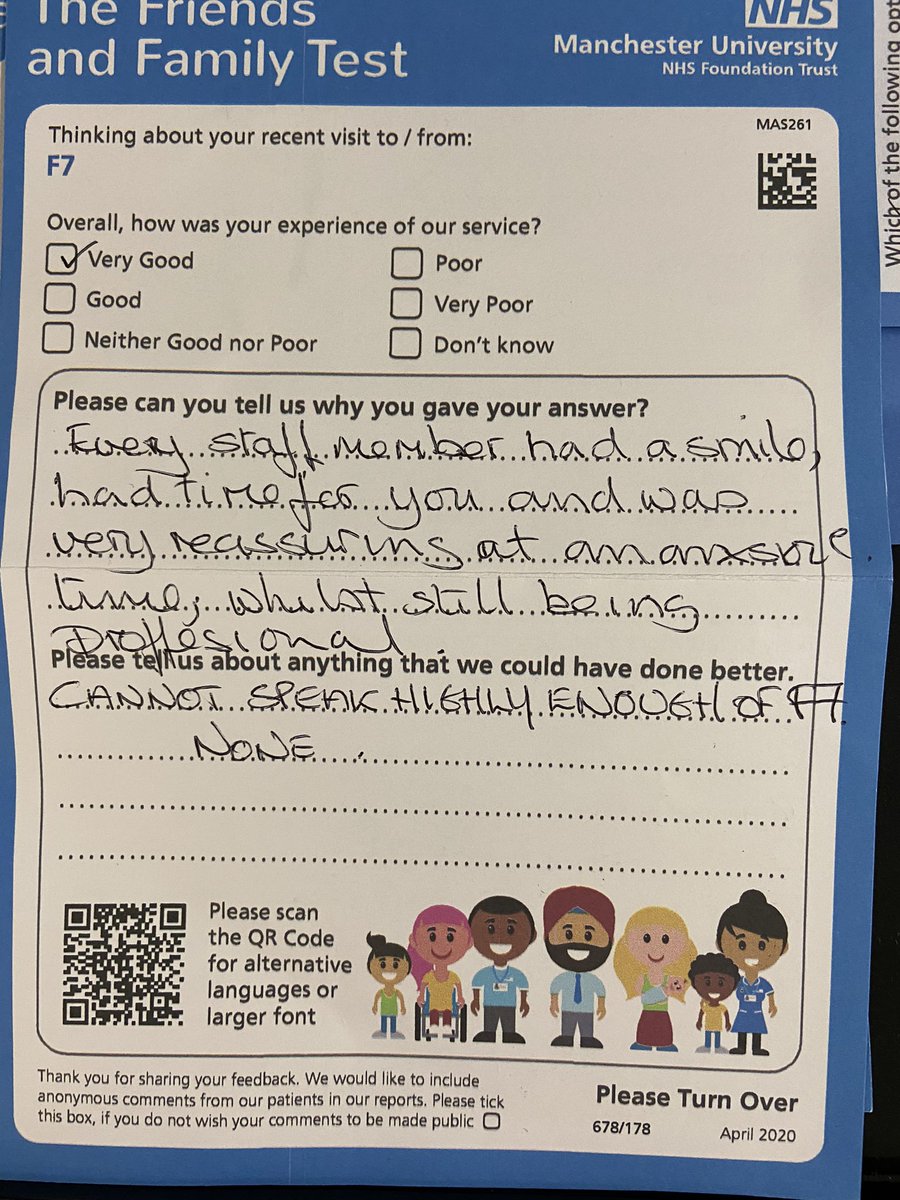 The Friends
and Family Test
NHS
Manchester University
NHS Foundation Trust
MAS261
Thinking about your recent visit to / from:
F7
Overall, how was your experience of our service?
Very Good
Poor
Good
Very Poor
Neither Good nor Poor
Don't know
Please can you tell us why you gave your answer?
Every staff member had a smile,
had time for you and was
very reassuring at an anxsure
time, whilst still being
proffesional.
Please tell us about anything that we could have done better.
CANNOT SPEAK HIGHLY ENOUGH OF F7
NONE.
Please scan
the QR Code
for alternative
languages or
larger font
Thank you for sharing your feedback. We would like to include
anonymous comments from our patients in our reports. Please tick
this box, if you do not wish your comments to be made public
Please Turn Over
678/178
April 2020
Which of the following opt